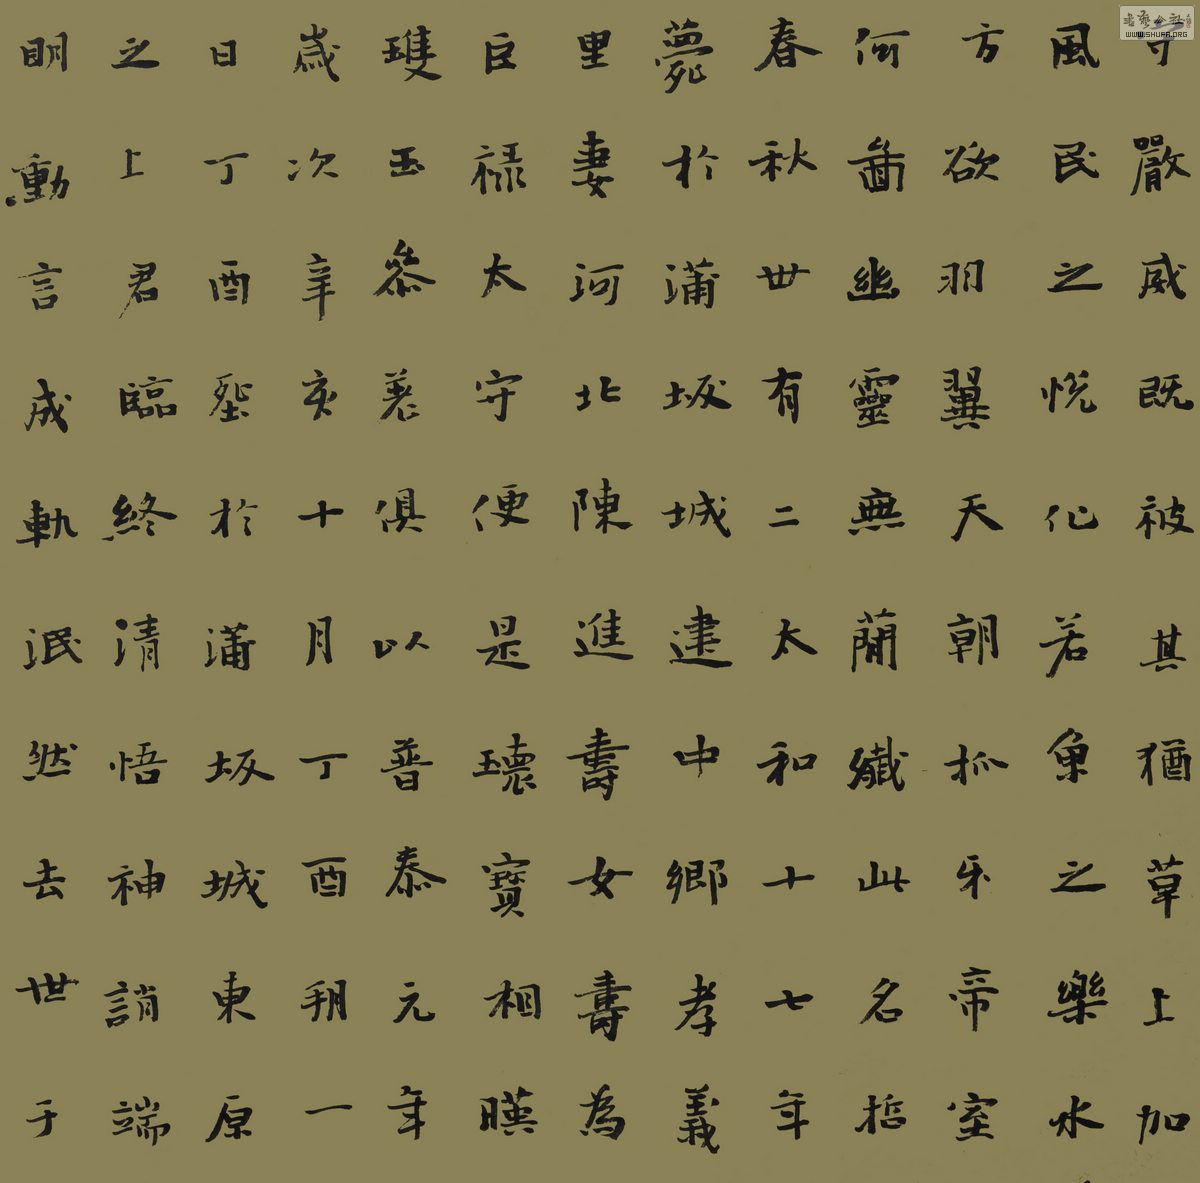 嚴威既被其猶草上加
風民之悅化若魚之樂水
方欲羽翼天朝抓牙帝室
何啚幽靈無蕑殲此名哲
春秋丗有二太和十七年
薨於蒲坂城建中鄉孝義
里妻河北陳進壽女壽為
巨祿太守便是瓌寶相暎
瓊玉參差俱以普泰元年
歲次辛亥十月丁酉朔一
日丁酉塟於蒲坂城東原
之上君臨終清悟神誚端
明動言成軌泯然去世于
WWW.SHUFA.ORG